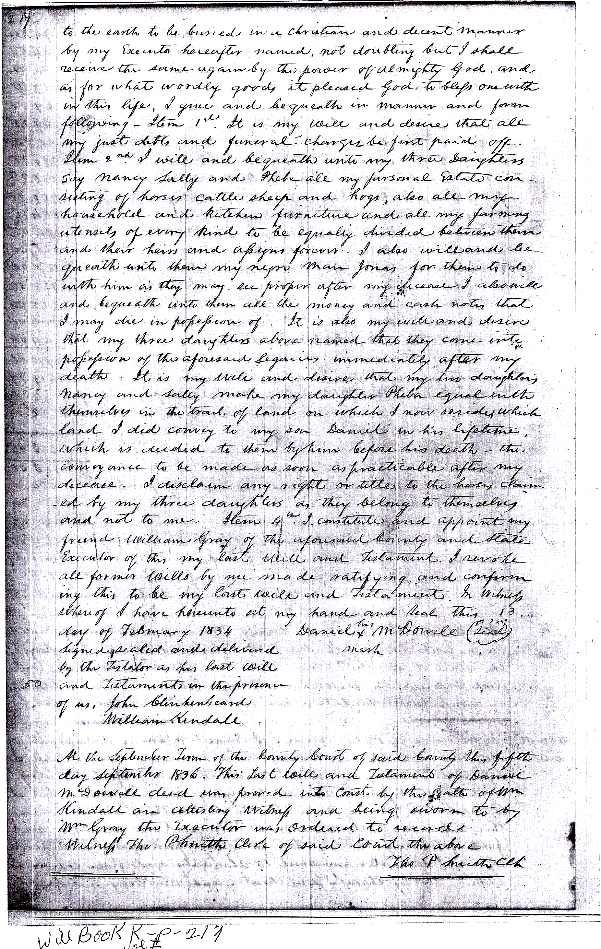 217
to the earth to be buried in a Christian and decent manner
by my Executor hereafter named, not doubting but I shall
receive the same again by the power of Almighty God, and
as for what wordly goods it pleased God to bless me with
in this life, I give and bequeath in manner and form
following - Item 1st. It is my will and desire that all
my just debts and funeral charges be first paid off.
Item 2nd I will and bequeath unto my three Daughters
Say Nancy Sally and Pheba all my personal Estate con
sisting of horses cattle sheep and hogs, also all my
household and kitchen furniture and all my farming
utensels of every kind to be equally divided between them
and their heirs and assigns forever. I also will and be
queath unto them my negro man Jonas for them to do
with him as they may see proper after my decease I also will
and bequeath unto them all the money and cash notes that
I may die in possession of. It is also my will and desire
that my three daughters above named that they come into
possession of the aforesaid legacies immediately after my
death. It is my will and desire that my two daughters
Nancy and Sally make my daughter Pheba equal with
themselves in the tract of land on which I now reside which
land I did convey to my son Daniel in his lifetime,
which is deeded to them by him before his death - the
conveyance to be made as soon as practicable after my
decease. I disclaim any right or title to the claim
ed by my three daughters as they belong to themselves
and not to me. Item 4th I constitute and appoint my
friend William Gray of the aforesaid County and State
Executor of this my last Will and Testament. I revoke
all former Wills by me made ratifying and confirm
ing this to be my last will and Testament. In Witness
whereof I have hereunto set my hand and Seal this 13
day of February 1834 Daniel his x McDowell (Seal)
Signed sealed and delivered mark
by the Testator as his last will
and Testaments in the presence
of us. John Clinkenbeard
William Kendall
At the September Term of the County Court of said County the fifth
day September 1836. This Last Will and Testament of Daniel
McDowell decd was proved into Court by the Oath of Wm
Kindall an attesting Witness and being sworn to by
Wm Gray the Executor was ordered to record
Witness Tho. P Smith Clerk of said Court the above
Thos P Smith Clk
Will Book K-P-217